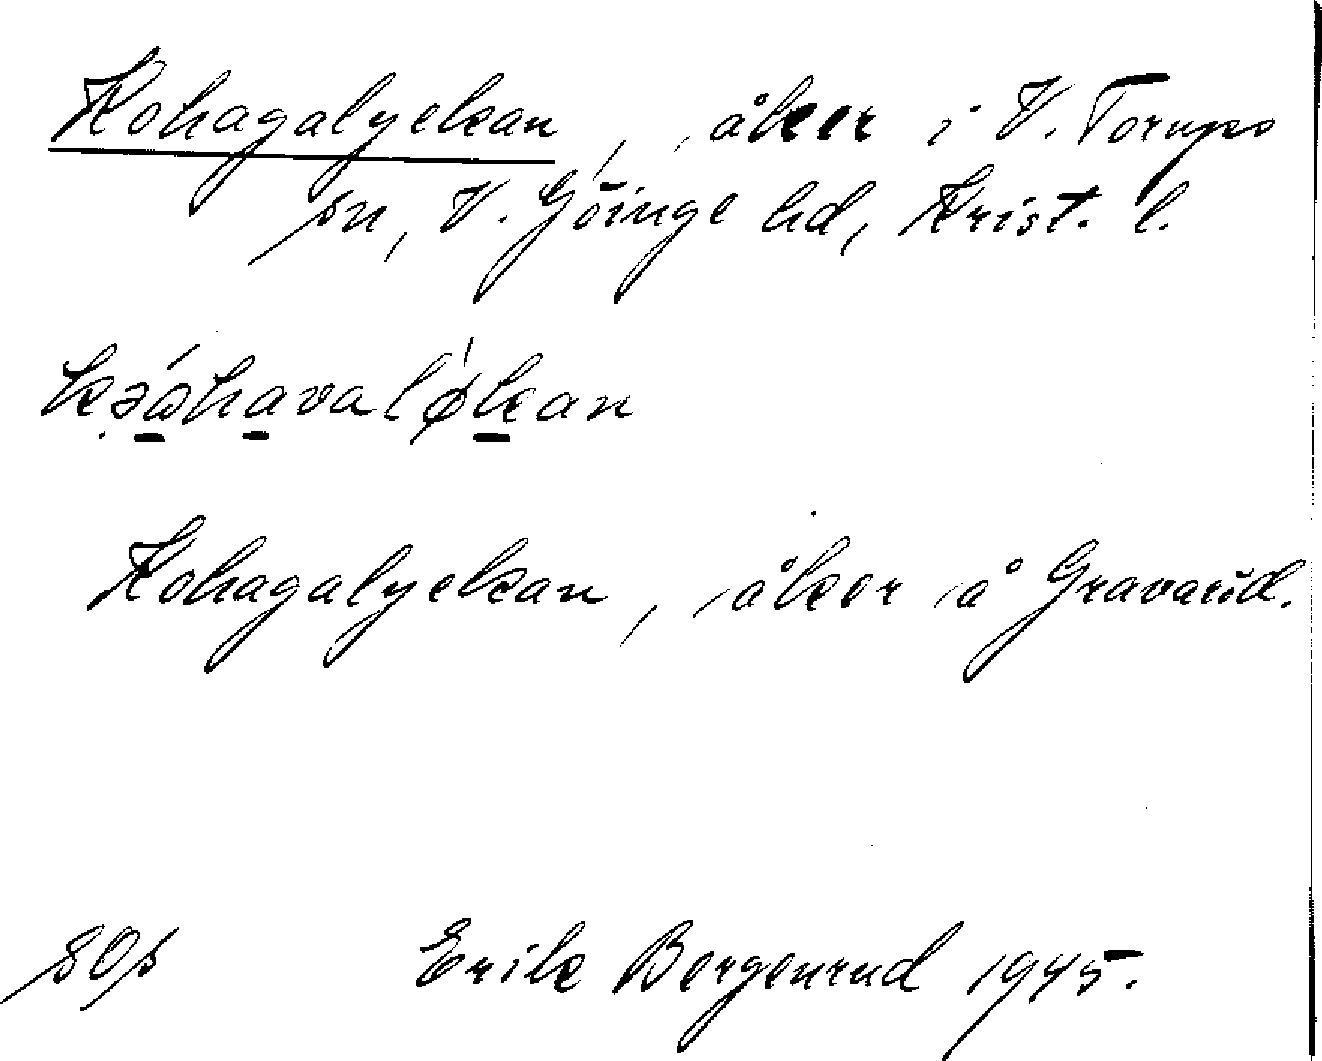 Kohagalyckan, åker i V. Torups
sn, V. Göinge hd, Krist. l.
kəáhavalǿkan
Kohagalyckan, åker å Gravarid.
Erik Bergenrud 1945.